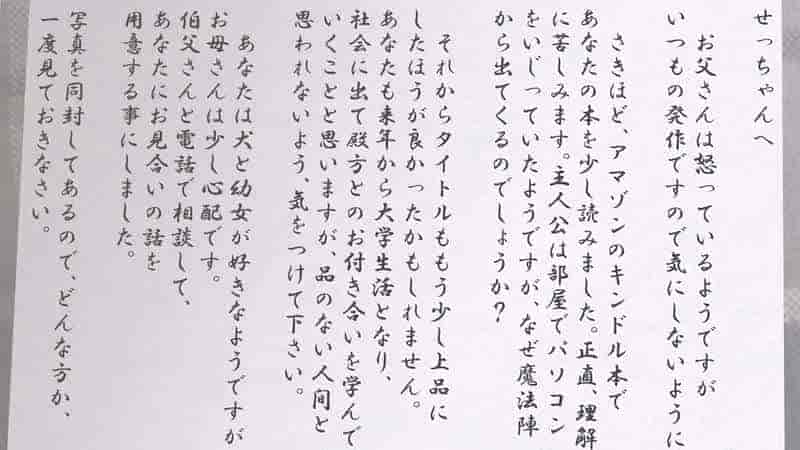 せっちゃんへ
お父さんは怒っているようですが
いつもの発作ですので気にしないように
さきほど、アマゾンのキンドル本で
あなたの本を少し読みました。正直、理解
に苦しみます。主人公は部屋でパソコン
をいじっていたようですが、なぜ魔法陣
から出てくるのでしょうか?
それからタイトルももう少し上品に
したほうが良かったかもしれません。
あなたも来年から大学生活となり、
社会に出て殿方とのお付き合いを学んで
いくことと思いますが、品のない人間と
思われないよう、気をつけて下さい。
あなたは犬と幼女が好きなようですが
お母さんは少し心配です。
伯父さんと電話で相談して、
あなたにお見合いの話を
用意する事にしました。
写真を同封してあるので、どんな方か、
一度見ておきなさい。